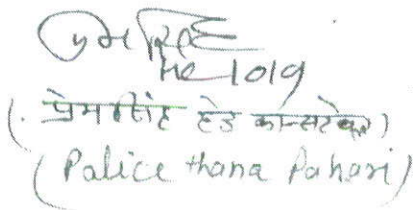 प्रेमसिंह
HC 1019
(. प्रेमसिंह हेड कान्सटेबल)
(Palice thana Pahari)